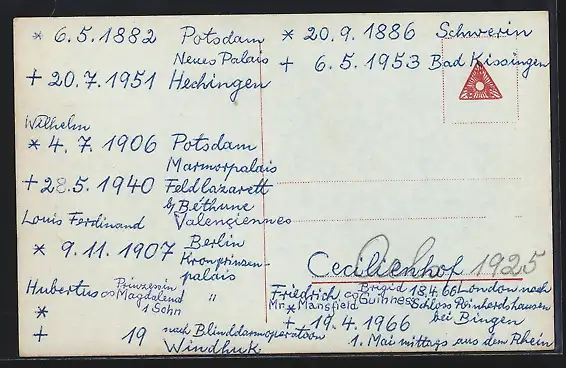 * 6.5.1882 Potsdam
Neues Palais
+ 20.7.1951 Hechingen
* 20.9.1886 Schwerin
+ 6.5.1953 Bad Kissingen
Wilhelm
* 4.7.1906 Potsdam
Marmorpalais
+ 28.5.1940 Feldlazarett
b/ Béthune
Louis Ferdinand Valenciennes
* 9.11.1907 Berlin
Kronprinzen-
palais
Hubertus ∞ Prinzessin
Magdalend "
1 Sohn
*
+ 19 nach Blinddarmoperation
Windhuk
Cecilienhof 1925
Friedrich ∞ Brigid 18.4.66 London nach
Mr. Mansfield Guinness Schloss Reinhardshausen
* bei Bingen
+ 19.4.1966
1. Mai mittags aus dem Rhein